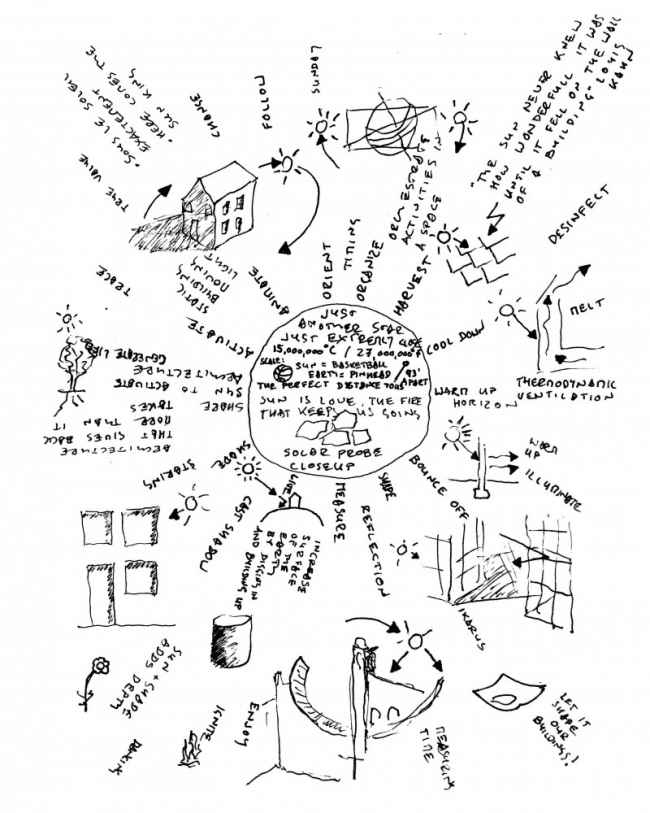 JUST
ANOTHER STAR
JUST EXTREMLY CLOSE
15,000,000°C / 27,000,000°F
SCALE:
SUN = BASKETBALL
EARTH = PINHEAD
93'
APART
THE PERFECT DISTANCE
SUN IS LOVE, THE FIRE
THAT KEEPS US GOING
SOLAR PROBE
CLOSEUP
ORIENT
TIMING
ORGANIZE
ORCHESTRATE
ACTIVITIES IN
A SPACE
HARVEST
"THE SUN NEVER KNEW
HOW WONDERFULL IT WAS
UNTIL IT FELL ON THE WALL
OF A BUILDING" LOUIS
KAHN
COOL DOWN
DESINFECT
MELT
THERMODYNAMIC
VENTILATION
WARM UP
HORIZON
WARM
UP
ILLUMINATE
BOUNCE OFF
IKARUS
LET IT
SHAPE
OUR
BUILDINGS!
REFLECTION
MEASURING
TIME
MEASURE
LIVE
INCREASE
SURFACE
OF THE
EARTH
BY DIGGING IN
AND BUILDING UP
ENJOY
IGNITE
CAST SHADOW
SHADE
SUN + SHADE
ADDS DEPTH
STORING
ARCHITECTURE
THAT GIVES BACK
MORE THAN IT
TAKES
SHARE
SUN TO ACTIVATE
ARCHITECTURE
GENERATE LIFE
ACTIVATE
TRACE
ANIMATE
STATIC
BUILDING
MOVING
LIGHT
TIME VALUE
• SOUS LE SOLEIL
EXACTEMENT
• HERE COMES THE
SUN KING
CHANGE
FOLLOW
SUNDAY